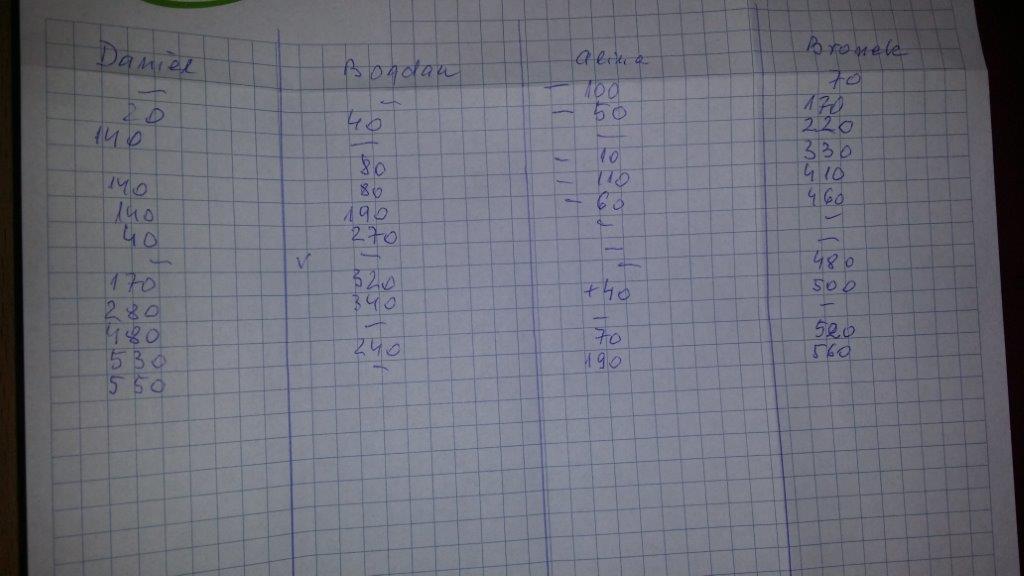 Daniel Bogdan Alina Bronek
— — — 100 70
20 40 — 50 170
140 — — 220
80 — 10 330
140 80 — 110 410
140 190 — 60 460
40 270 — —
— v — — —
170 320 — 480
280 340 +40 500
480 — — —
530 240 70 520
550 — 190 560